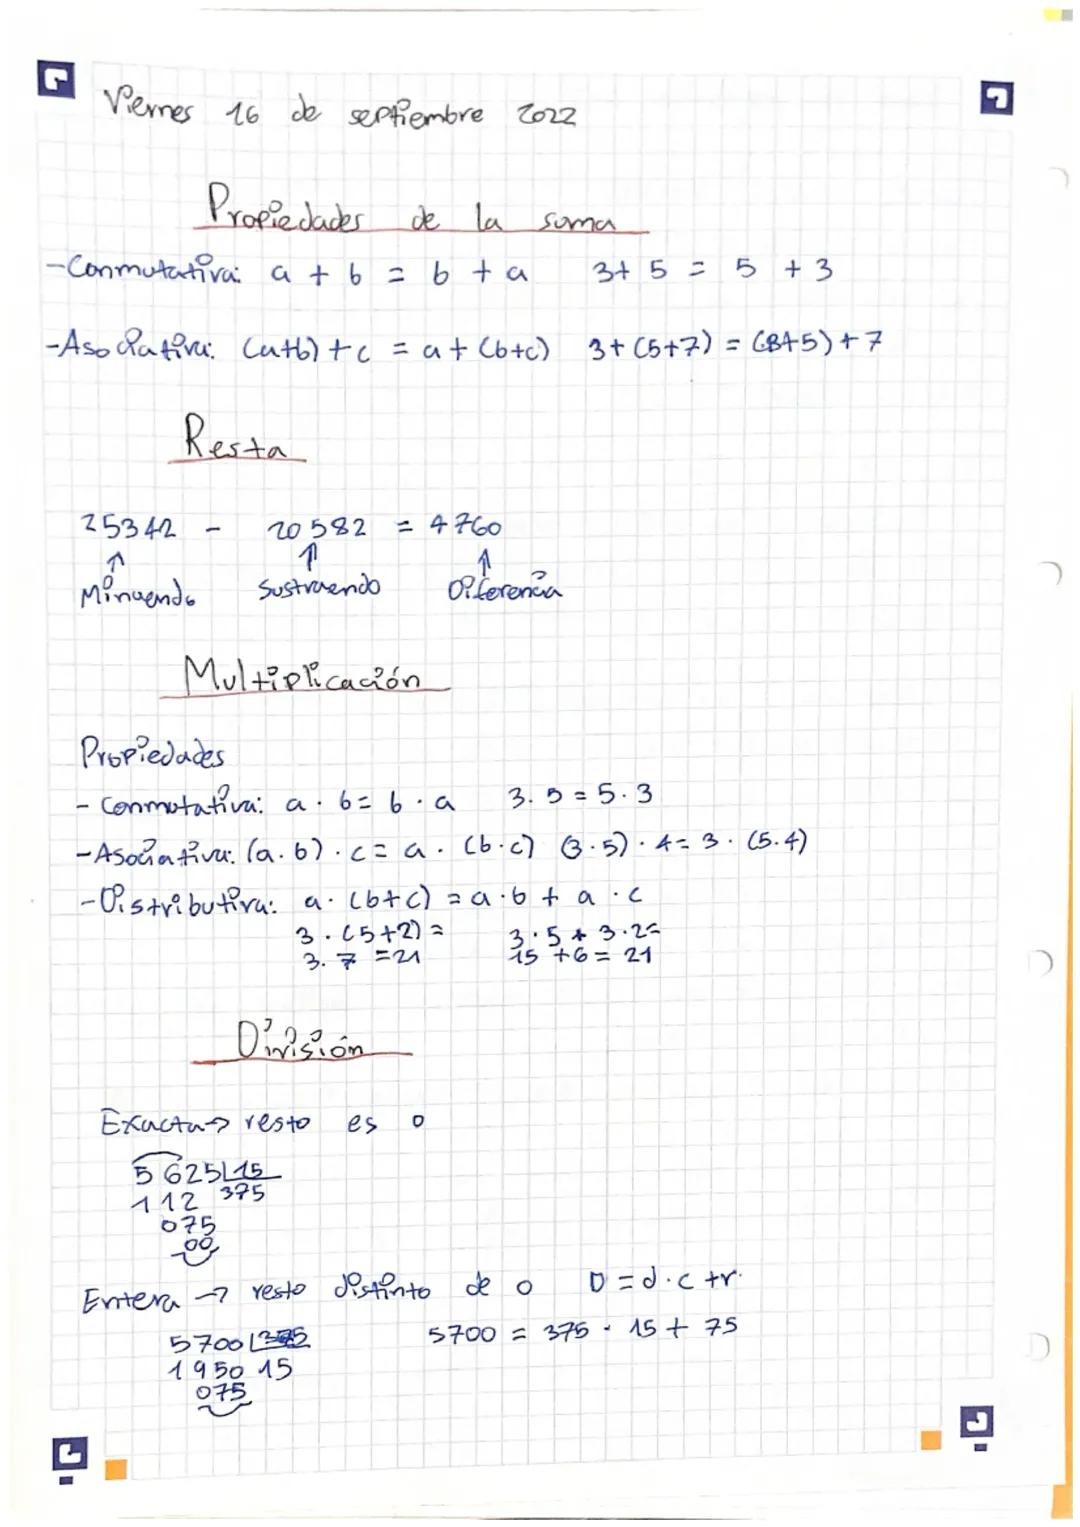 Viernes 16 de septiembre 2022
Propiedades de la suma
-Conmutativa: a + b = b + a 3+ 5 = 5 + 3
-Asociativa: (a+b) + c = a + (b+c) 3+ (5+7) = (3+5) + 7
Resta
25342 - 20582 = 4760
↑ ↑ ↑
Minuendo Sustraendo Diferencia
Multiplicación
Propiedades
- Conmutativa: a · b = b · a 3. 5 = 5.3
-Asociativa: (a.b) · c = a · (b.c) (3.5) · 4 = 3 · (5.4)
-Distributiva: a · (b+c) = a·b + a · c
3 · (5+2) = 3·5 + 3·2=
3. 7 =21 15 +6 = 21
División
Exacta→ resto es 0
5625 15
112 375
075
00
Entera → resto distinto de 0 D = d·c +r.
5700 375 5700 = 375 · 15 + 75
1950 15
075